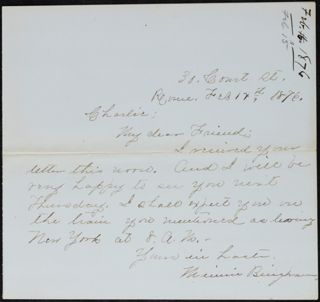 Feb 1876
Feb 15
30. Court St.
Rome. Feb 17th, 1876.
Charlie;
My dear Friend;
I received your
letter this noon. And I will be
very happy to see you next
Thursday. I shall expect you on
the train you mentioned as leaving
New York at 8. A.M.-
Yours in haste.
Minnie Bingham